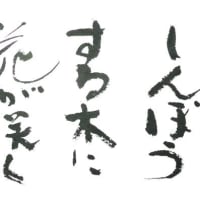 しんぼう
する木に
花が咲く